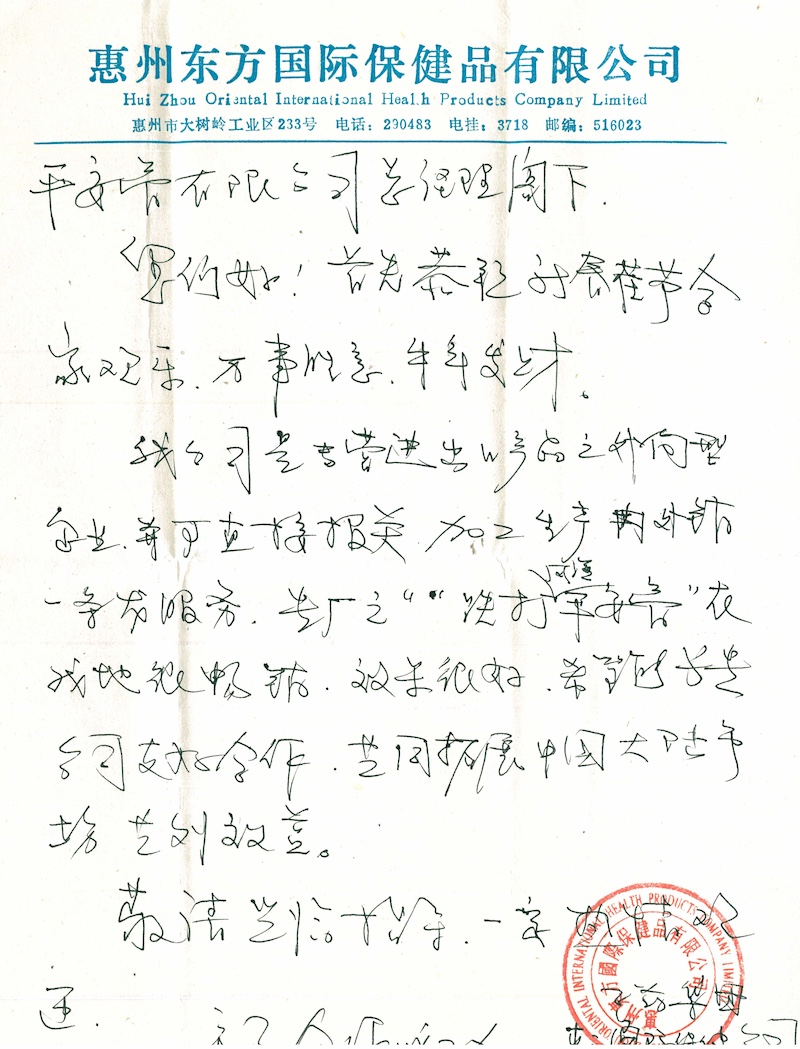 惠州东方国际保健品有限公司
Hui Zhou Oriental International Health Products Company Limited
惠州市大树岭工业区233号 电话：290483 电挂：3718 邮编：516023
平安膏有限公司总经理阁下.
您们好！首先恭祝新春佳节合
家欢乐.万事胜意.牛年发财。
我公司是专营进出口产品之外向型
企业.并可直接报关.加工生产内外销
一条龙服务.贵厂之“跌打风湿平安膏”在
我地很畅销.效果很好.希望能与贵
公司友好合作.共同拓展中国大陆市
场 共创效益。
敬请 指导.一定热情欢
迎.
祝 合作
惠州東方國際保健品有限公司
ORIENTAL INTERNATIONAL HEALTH PRODUCTS COMPANY LIMITED